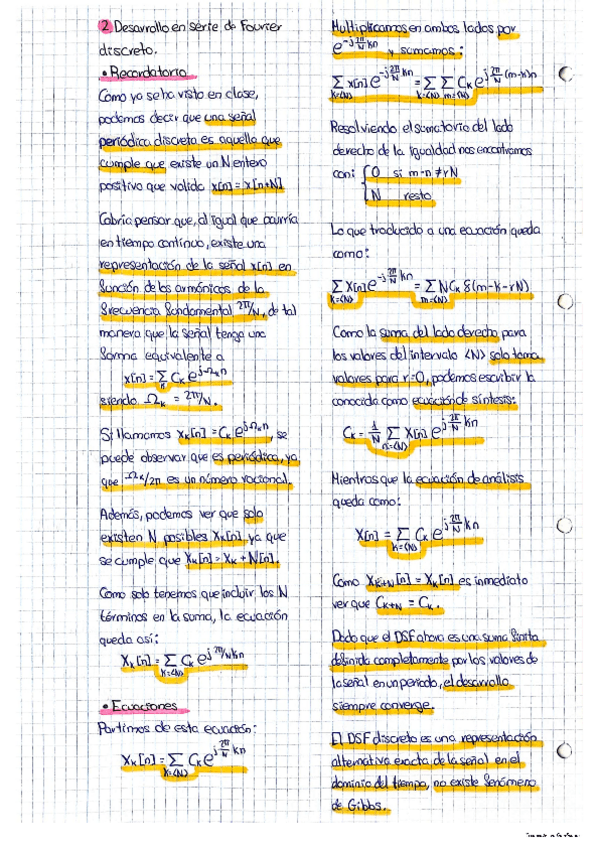 2 Desarrollo en serie de Fourier
discreto.
• Recordatorio
Como ya se ha visto en clase,
podemos decir que una señal
periódica discreta es aquella que
cumple que existe un N entero
positivo que valida x[n] = x[n+N]
Cabría pensar que, al igual que ocurría
en tiempo continuo, existe una
representación de la señal x[n] en
función de los armónicos de la
frecuencia fundamental 2π/N, de tal
manera que la señal tenga una
forma equivalente a
x[n] = Σ Cₖ e^{jΩₖn}
siendo Ωₖ = 2π/N.
Si llamamos Xₖ[n] = Cₖ e^{jΩₖn}, se
puede observar que es periódica, ya
que Ωₖ/2π es un número racional.
Además, podemos ver que solo
existen N posibles Xₖ[n], ya que
se cumple que Xₖ[n] = Xₖ + N[n].
Como solo tenemos que incluir los N
términos en la suma, la ecuación
queda así:
Xₖ[n] = Σ_{k=<N>} Cₖ e^{j 2π/N kn}
• Ecuaciones
Partimos de esta ecuación:
Xₖ[n] = Σ_{k=<N>} Cₖ e^{j 2π/N kn}
Multiplicamos en ambos lados por
e^{-j 2π/N kn} y sumamos:
Σ_{k=<N>} x[n] e^{-j 2π/N kn} = Σ_{k=<N>} Σ_{m=<N>} Cₖ e^{j 2π/N (m-k)n}
Resolviendo el sumatorio del lado
derecho de la igualdad nos encontramos
con: { 0 si m-n ≠ rN
N resto
Lo que traducido a una ecuación queda
como:
Σ_{k=<N>} X[n] e^{-j 2π/N kn} = Σ_{m=<N>} N Cₖ δ(m-k-rN)
Como la suma del lado derecho para
los valores del intervalo <N> solo toma
valores para r=0, podemos escribir la
conocida como ecuación de síntesis:
Cₖ = 1/N Σ_{n=<N>} X[n] e^{j 2π/N kn}
Mientras que la ecuación de análisis
queda como:
X[n] = Σ_{k=<N>} Cₖ e^{j 2π/N kn}
Como Xₖ₊ₙ[n] = Xₖ[n] es inmediato
ver que Cₖ₊ₙ = Cₖ.
Dado que el DSF ahora es una suma finita
definida completamente por los valores de
la señal en un periodo, el desarrollo
siempre converge.
El DSF discreto es una representación
alternativa exacta de la señal en el
dominio del tiempo, no existe fenómeno
de Gibbs.